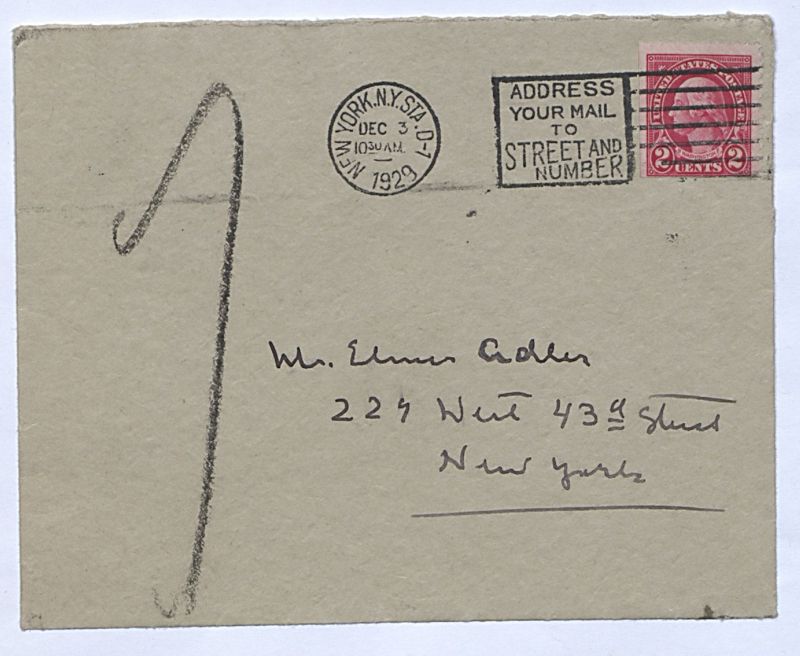 NEW YORK, N.Y. STA. D-1
DEC 3
10 30 AM
1929
ADDRESS
YOUR MAIL
TO
STREET AND
NUMBER
UNITED STATES POSTAGE
WASHINGTON
2 CENTS 2
Mr. Elmer Adler
229 West 43d Street
New York